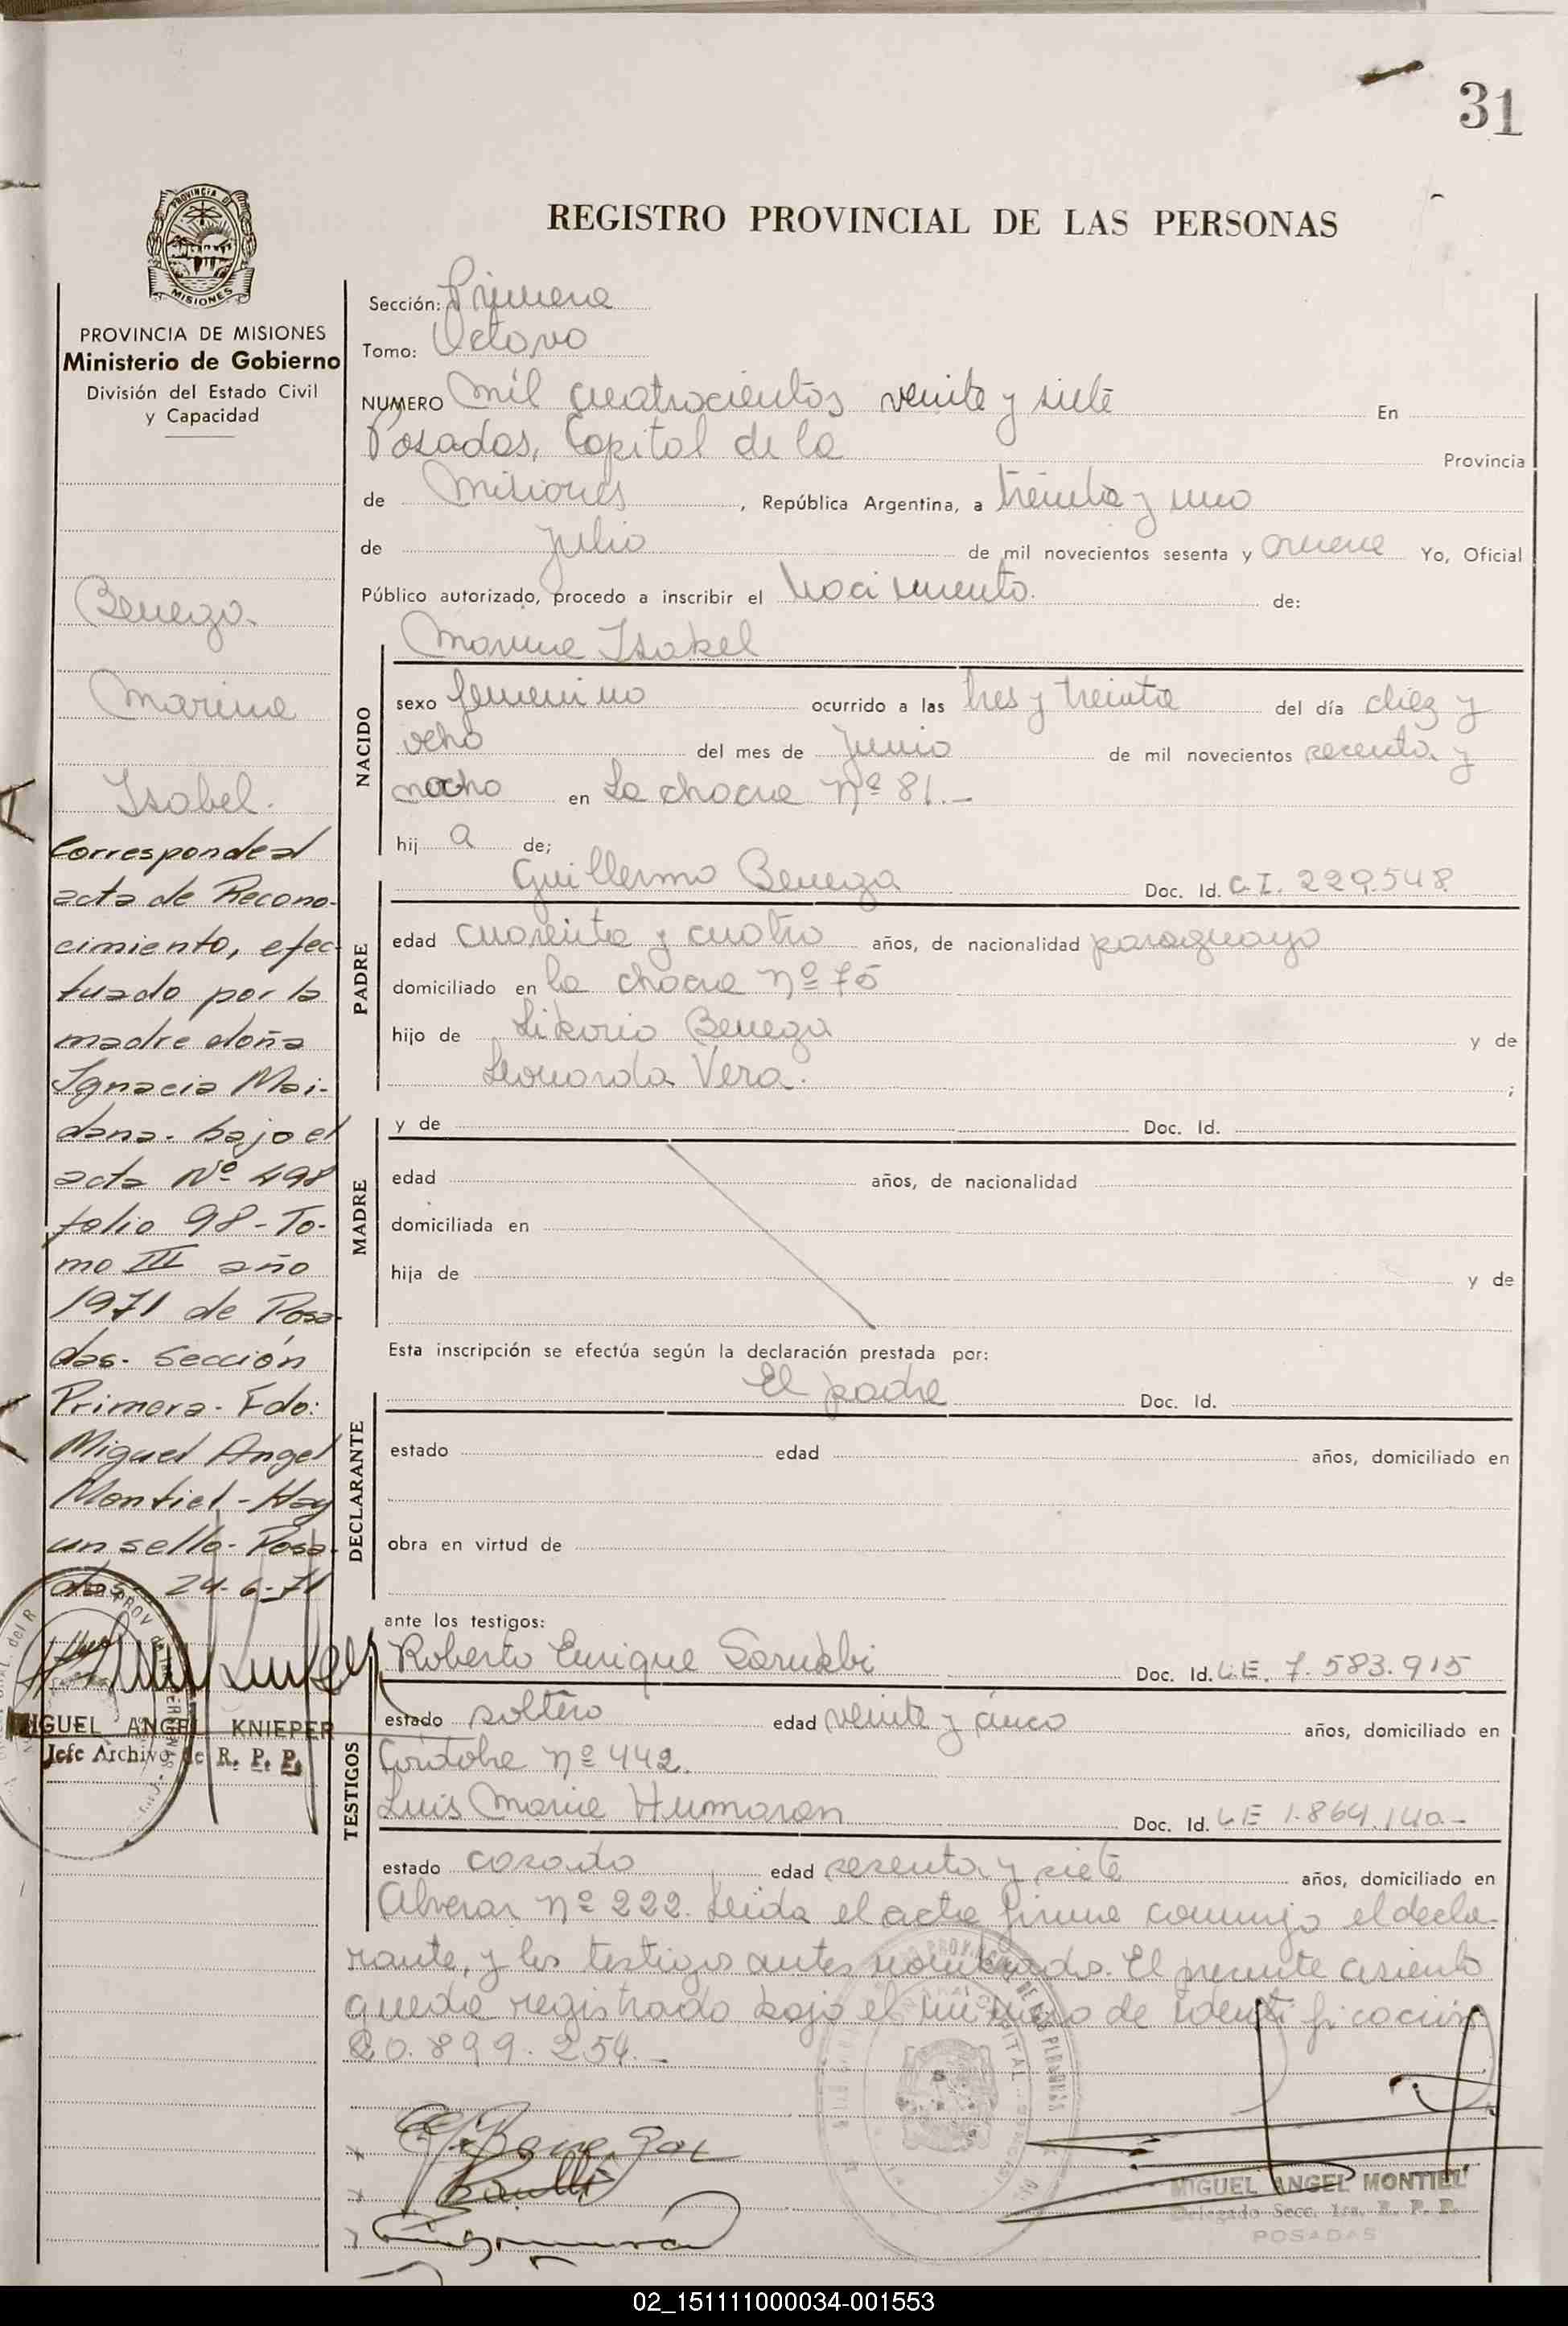 31
PROVINCIA DE
MISIONES
REGISTRO PROVINCIAL DE LAS PERSONAS
PROVINCIA DE MISIONES
Ministerio de Gobierno
División del Estado Civil
y Capacidad
Benega
Marina
Isabel.
Corresponde al
acta de Recono-
cimiento, efec-
tuado por la
madre doña
Ignacia Mai-
dana. bajo el
acta Nº 498
folio 98 - To-
mo III año
1971 de Posa-
das. Sección
Primera - Fdo:
Miguel Angel
Montiel - Hay
un sello - Posa-
das - 24-6-71
MIGUEL ANGEL KNIEPER
Jefe Archivo de R. P. P.
Sección: Primera
Tomo: Octavo
NUMERO mil cuatrocientos veinte y siete En
Posadas, Capital de la Provincia
de Misiones, República Argentina, a treinta y uno
de Julio de mil novecientos sesenta y nueve Yo, Oficial
Público autorizado, procedo a inscribir el Nacimiento. de:
Marina Isabel
NACIDO
sexo femenino ocurrido a las tres y treinta del día diez y
ocho del mes de Junio de mil novecientos sesenta y
ocho en La chacra Nº 81.-
hij a de;
PADRE
Guillermo Benega Doc. Id. C.I. 229.548
edad cuarenta y cuatro años, de nacionalidad paraguayo
domiciliado en la chacra Nº 75
hijo de Likorio Benega y de
Leonarda Vera. ;
MADRE
y de Doc. Id.
edad años, de nacionalidad
domiciliada en
hija de y de
Esta inscripción se efectúa según la declaración prestada por:
DECLARANTE
El padre Doc. Id.
estado edad años, domiciliado en
obra en virtud de
ante los testigos:
TESTIGOS
Roberto Enrique Sarubbi Doc. Id. L.E. 7.583.915
estado soltero edad veinte y cinco años, domiciliado en
Córdoba Nº 442.
Luis Maria Humaran Doc. Id. LE 1.864.140.-
estado casado edad sesenta y siete años, domiciliado en
Alvear Nº 222. Leída el acta firma conmigo el decla-
rante, y los testigos antes nombrados. El presente asiento
queda registrado bajo el número de identificación
20.899.254.-
MIGUEL ANGEL MONTIEL
Delegado Secc. 1ra. R. P. P.
POSADAS
02_151111000034-001553